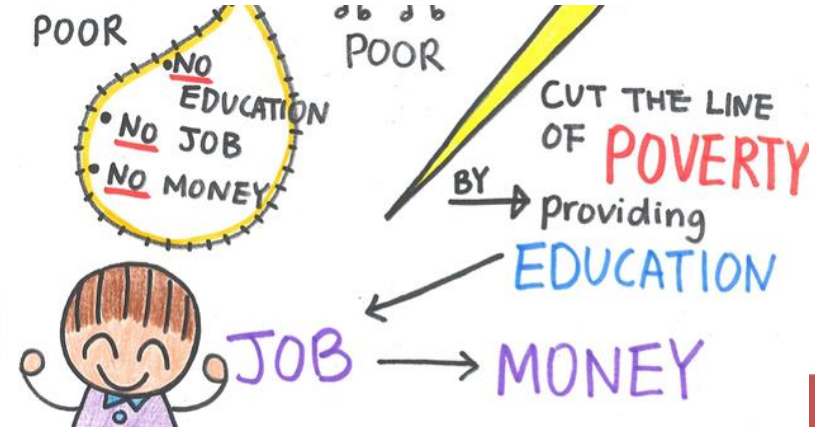 POOR
•NO
EDUCATION
•NO JOB
•NO MONEY
POOR
CUT THE LINE
OF POVERTY
BY
providing
EDUCATION
JOB
MONEY